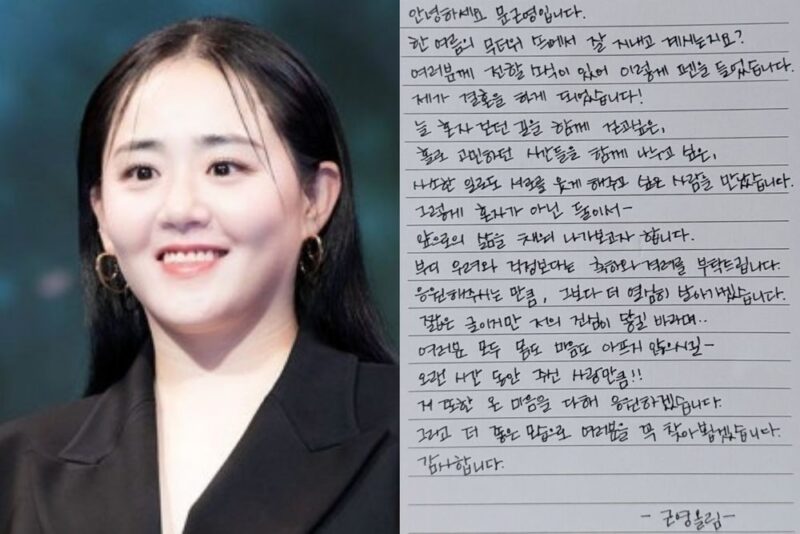 안녕하세요 문근영입니다.
한 여름의 무더위 속에서 잘 지내고 계시는지요?
여러분께 전할 소식이 있어 이렇게 펜을 들었습니다.
제가 결혼을 하게 되었습니다!
늘 혼자 걷던 길을 함께 걷고싶은,
홀로 고민하던 시간들을 함께 나누고 싶은,
사소한 일로도 서로를 웃게 해주고 싶은 사람을 만났습니다.
그렇게 혼자가 아닌 둘이서-
앞으로의 삶을 채워 나가보고자 합니다.
부디 우려와 걱정보다는 축하와 격려를 부탁드립니다.
응원해주시는 만큼, 그보다 더 열심히 살아가겠습니다.
짧은 글이지만 저의 진심이 닿길 바라며..
여러분 모두 몸도 마음도 아프지 않으시길-
오랜 시간 동안 주신 사랑만큼!!
저 또한 온 마음을 다해 응원하겠습니다.
그리고 더 좋은 모습으로 여러분을 꼭 찾아뵙겠습니다.
감사합니다.
- 근영올림 -